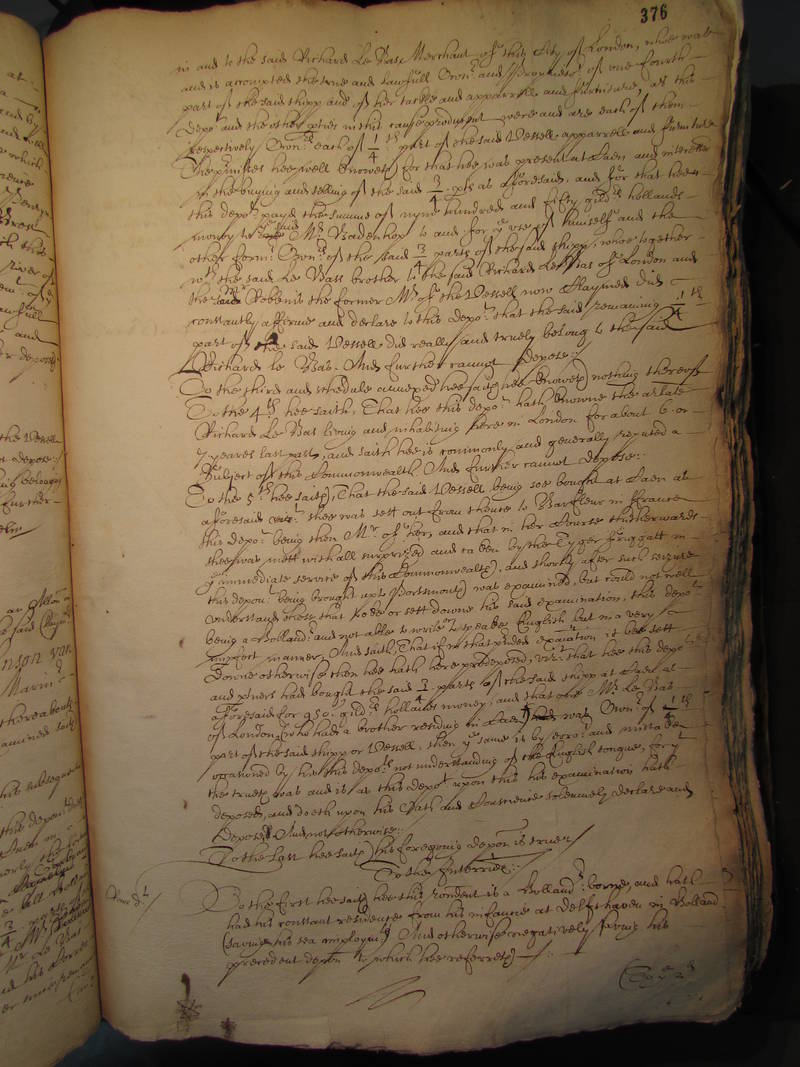 376
in and to the said Richard Le Bas, Merchant of this City of London, whoe was
and is accompted the true and lawfull Owner and Proprietor of one fourth
part of the said shipp and of her tackle and apparrell and furniture, as this
depot and the other ptners in this cause produced were and are each of them
respectively Owners each of 1/4th part of the said Vessell apparrell and furniture
The premisses hee well knoweth for that hee was present at Caen and interested
in the buying and selling of the said 3/4 pts as aforesaid, and for that hee
this depot payd the summe of nyne hundred and fifty guilds hollands
money to the said Mr Badenhop to and for ye use of himselfe and the
other form Owners of the said 3/4 parts of the said shipp, whoe together
wth the said Le Bas brother to the said Richard Le Bas of London and
the said Robenis the former Mr of the Vessell now claymed did
constantly affirme and declare to this depot that the said remaining 1/4th
part of the said Vessell did really and truely belong to the said
Richard le Bas. And further cannot depose:/
To the third and schedule annexed hee saith hee knoweth nothing thereof
To the 4th hee saith, That hee this depot hath knowne the arlate
Richard Le Bas living and inhabiting here in London for about 6 or
7 yeares last past, and saith hee is commonly and generally reputed a
Subject of this Commonwealth And further cannot depose:
To the 5th hee saith, That the said Vessell being soe bought at Caen as
aforesaid shee was sett out from thence to Barfleur in ffrance
this depot being then Mr of her, and that in her Course thitherwards
shee was mett with all surprized and taken by the Tyger ffriggatt in
ye immediate service of this Commonwealth, and shortly after such seizure
this depon being brought upto Portsmouth was examined, but could not well
understand those that tooke or sett downe his said examination, this depot
being a Hollander and not able to write or speake English but in a very
imperfect manner, And saith, That if in that prtended examination it bee sett
downe otherwise then hee hath here predeposed, vizt that hee this depot
and ptners had bought the said 3/4 parts of the said shipp at Caen as
aforesaid for 950 guilds hollands money, and that one Mr Le Bas
of London (who had a brother residing in Caen) was Owner of 1/4th
part of the said shipp or Vessell, then ye same is by error and mistake
occasioned by his this depots not understanding of the English tongue, for ye
the trueth was and is as this depot upon this his examination hath
deposed, and doeth upon his Oath and Conscience solemnely declare and
depose And not otherwise:
To the last hee saith his foregoing depon is true:/
To the Interries:
To the first hee saith hee this rondent is a Hollander borne, and hath
had his constant residence from his infancie at Delfthaven in Holland
(saving his sea imployings) And otherwise negatively saving his
precedent depon to which hee referreth